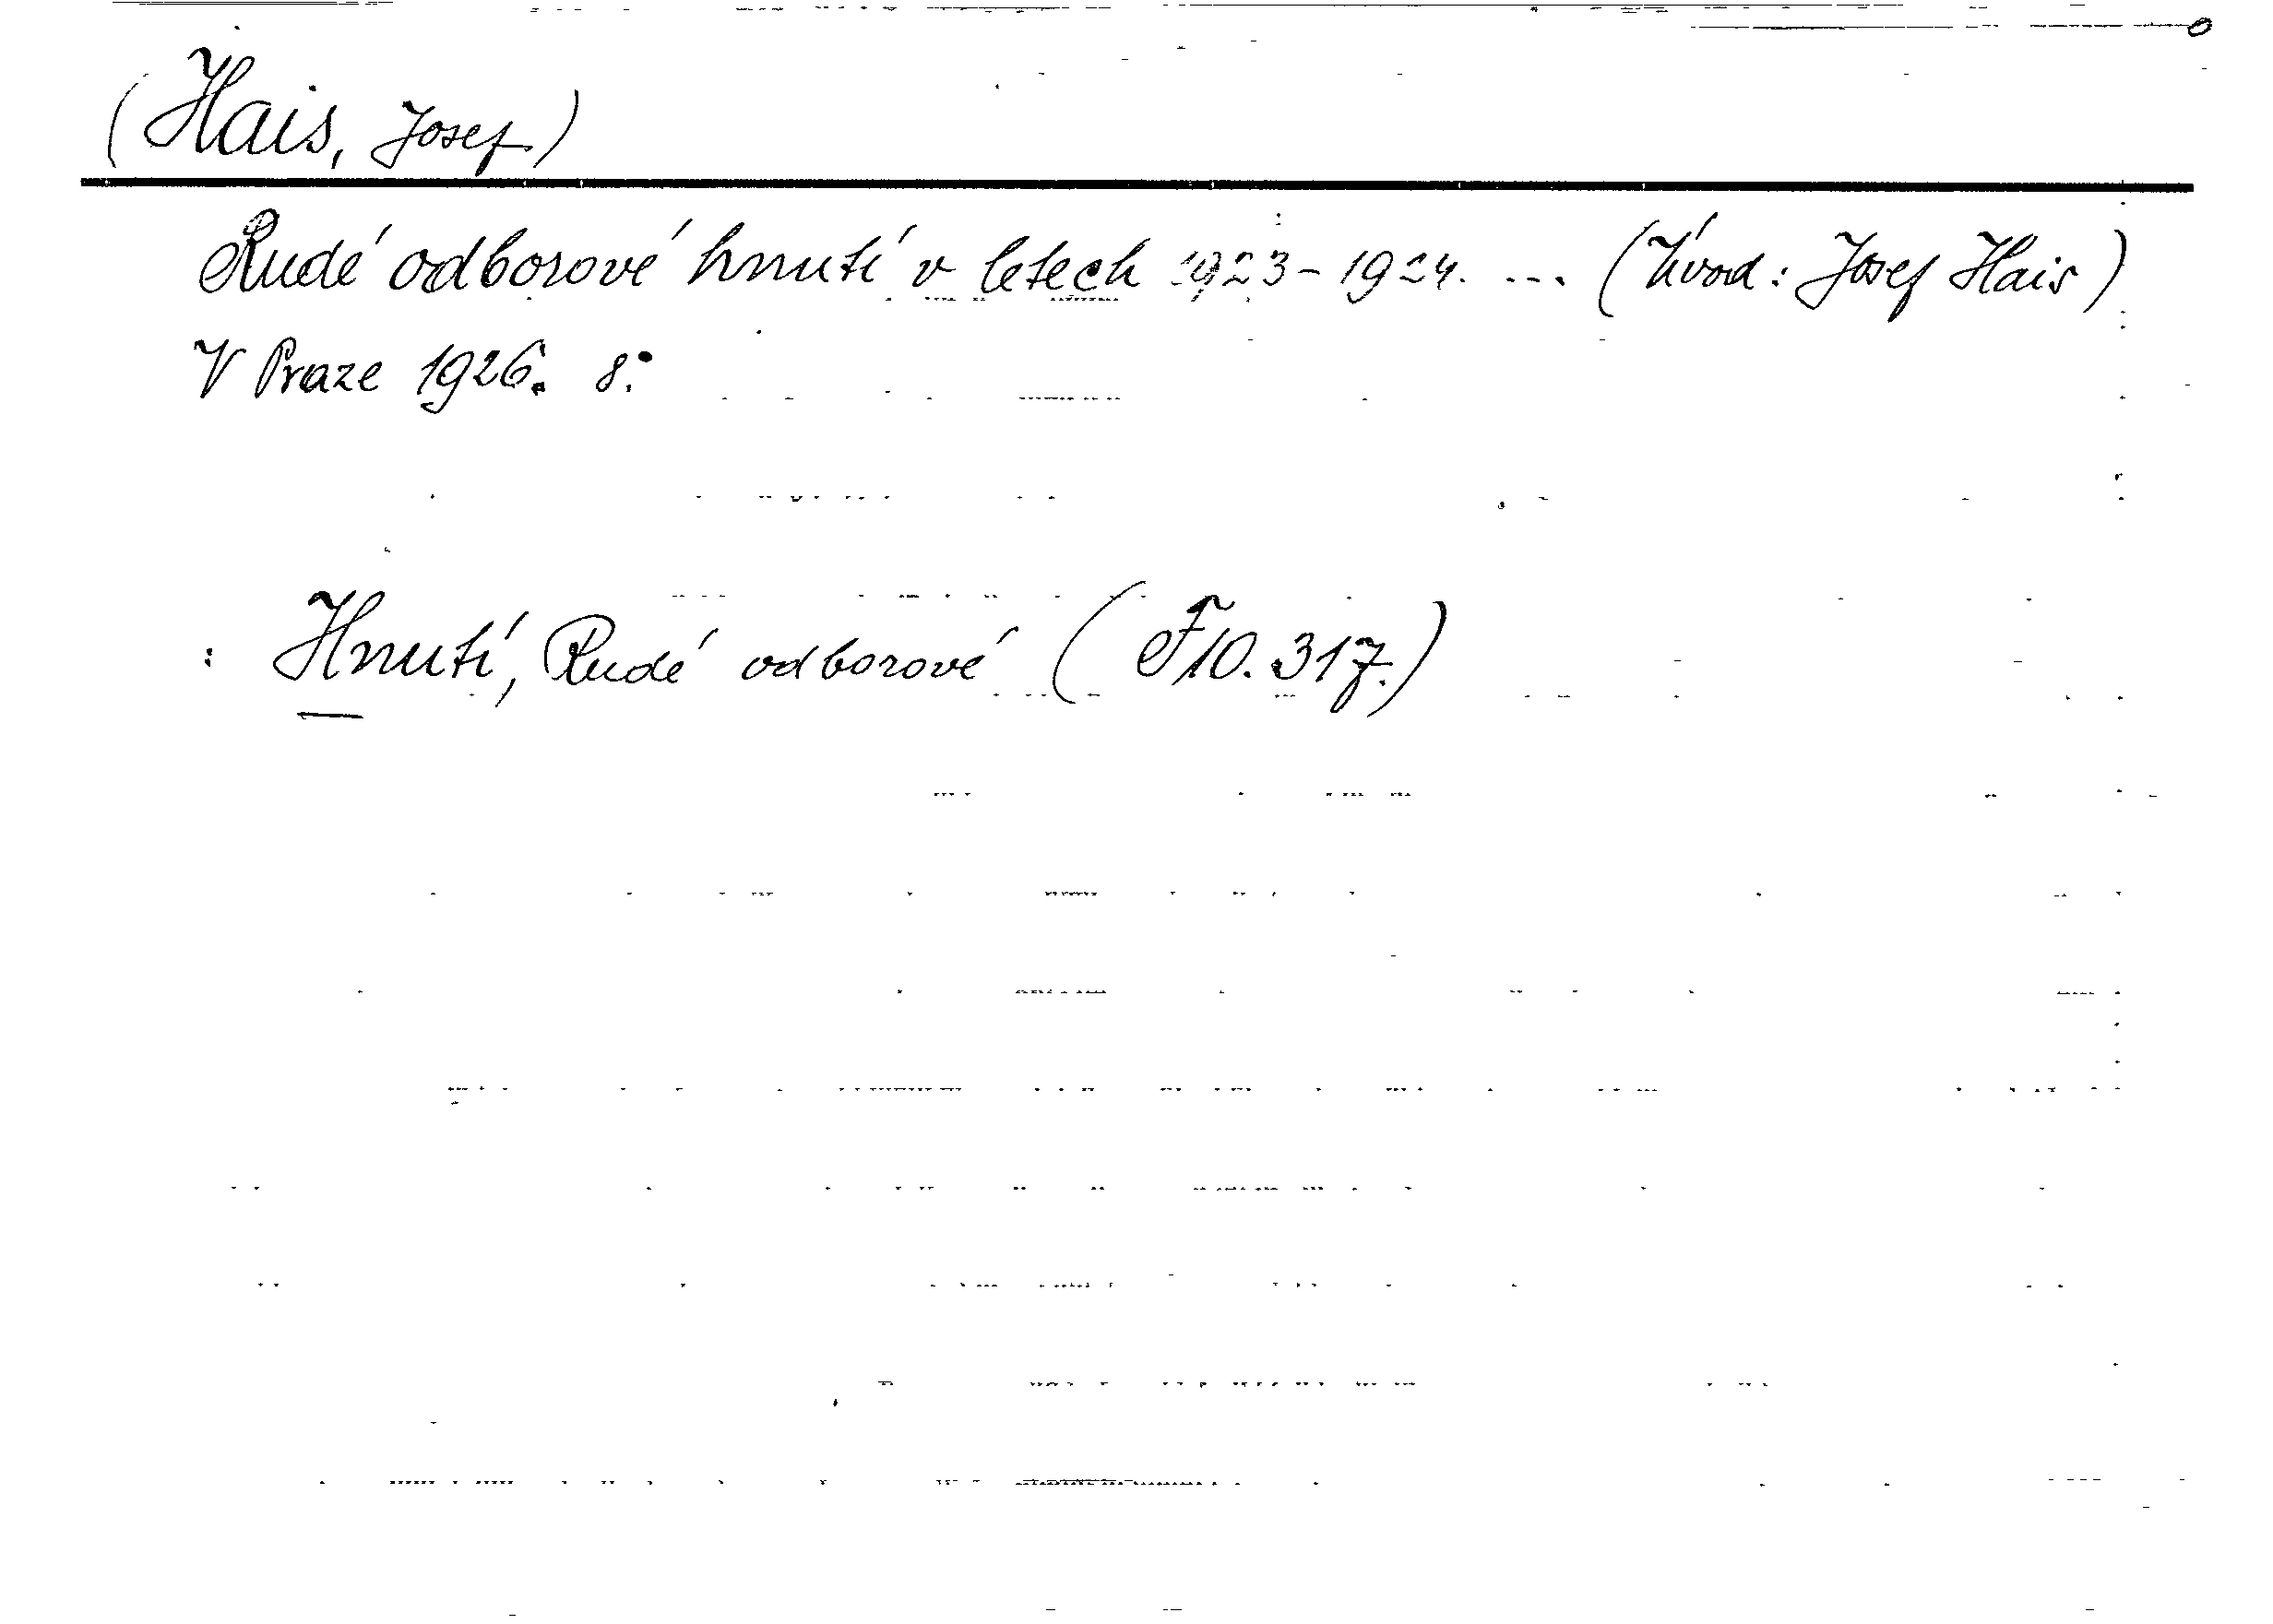 (Hais, Josef)
Rudé odborové hnutí v letech 1923-1924. ... (Úvod: Josef Hais)
V Praze 1926. 8.°
: Hnutí, Rudé odborové (F 10.317.)